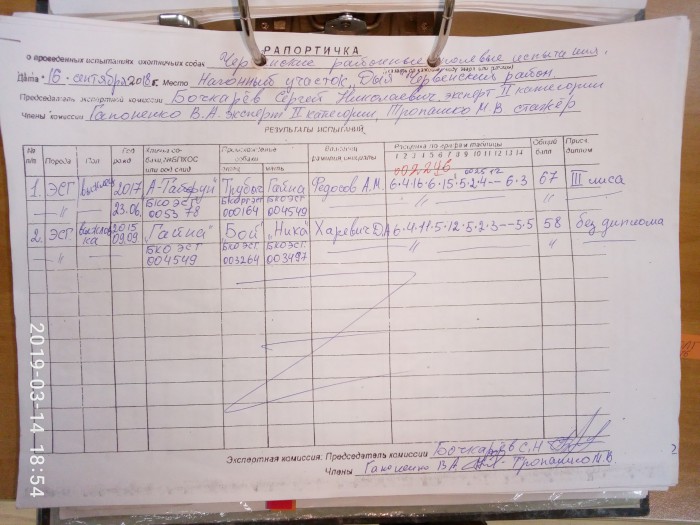 РАПОРТИЧКА
о проведенных испытаниях охотничьих собак Червенские районные полевые испытания.
Дата 16 сентября 2018 г. Место Нагонный участок, Червенский район
Председатель экспертной комиссии Бочкарёв Сергей Николаевич, эксперт II категории
Члены комиссии Гапоненко В.А. эксперт II категории, Тропашко М.В стажёр
РЕЗУЛЬТАТЫ ИСПЫТАНИЙ
№ п/п Порода Пол Год рожд Кличка собаки, №ВПКОС или род. свид Происхождение собаки отец мать Владелец фамилия инициалы Расценка по графам таблицы 1 2 3 4 5 6 7 8 9 10 11 12 13 14 Общий балл Присв. диплом
002246
1. ЭСГ 2017 А-Табаруй" Гайна Федосов А.М. 6·4·16·6·15·5·2·4--6·3 67 III лиса
-//- 23.06. БКО ЭСГ 0053 78 000164 БКО ЭСГ 004549 -//- //
2. ЭСГ выжловка 2015 09.09 "Гайна" Бой "Ника" Харевич Д.А 6·4·11·5·12·5·2·3--5·5 58 без диплома
-//- БКО ЭСГ 004549 БКО ЭСГ 003264 БКО ЭСГ 003497 -//- //
Экспертная комиссия: Председатель комиссии Бочкарёв С.Н
Члены Гапоненко В.А. Тропашко М.В.
2
2019-03-14 18:54